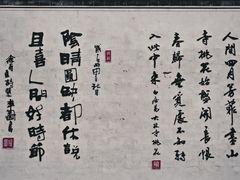 人間四月芳菲盡山
寺桃花始盛開長恨
春歸無覓處不知轉
入此中来 白居易大林寺桃花
陰晴圓缺都休說
且喜人間好時節